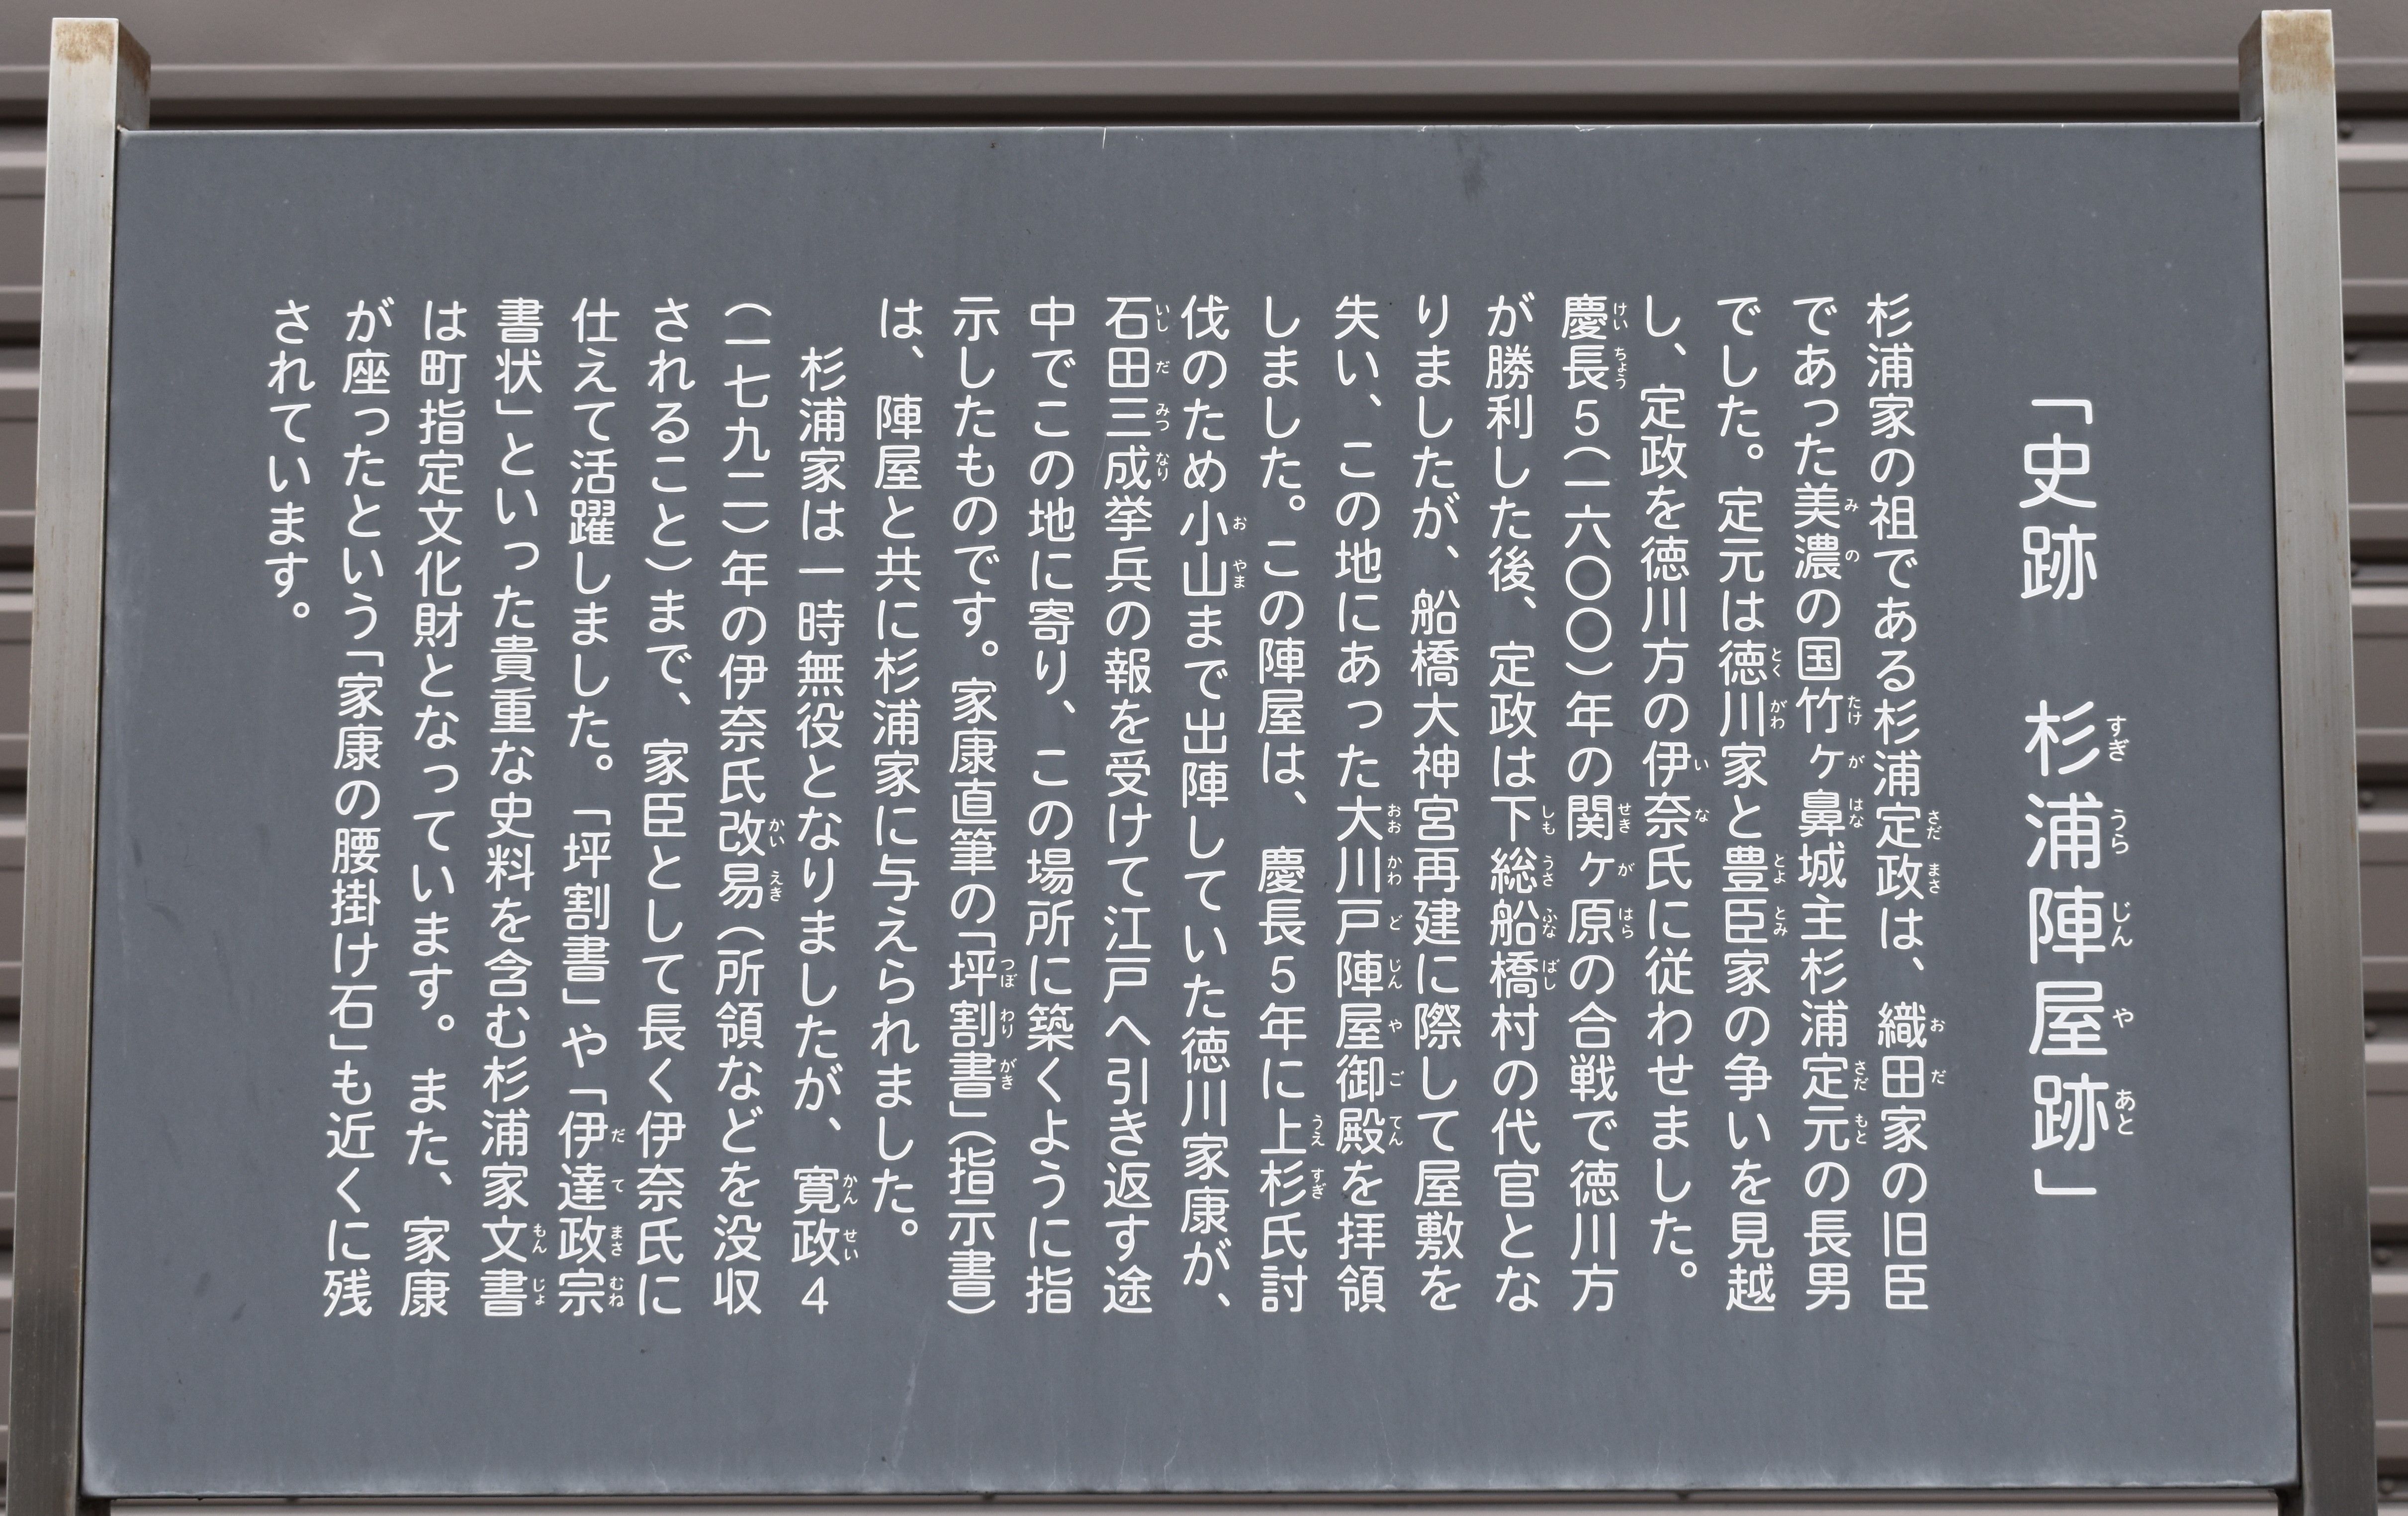 「史跡　杉浦陣屋跡」
杉浦家の祖である杉浦定政は、織田家の旧臣
であった美濃の国竹ヶ鼻城主杉浦定元の長男
でした。定元は徳川家と豊臣家の争いを見越
し、定政を徳川方の伊奈氏に従わせました。
慶長5(一六〇〇)年の関ヶ原の合戦で徳川方
が勝利した後、定政は下総船橋村の代官とな
りましたが、船橋大神宮再建に際して屋敷を
失い、この地にあった大川戸陣屋御殿を拝領
しました。この陣屋は、慶長5年に上杉氏討
伐のため小山まで出陣していた徳川家康が、
石田三成挙兵の報を受けて江戸へ引き返す途
中でこの地に寄り、この場所に築くように指
示したものです。家康直筆の「坪割書」(指示書)
は、陣屋と共に杉浦家に与えられました。
　杉浦家は一時無役となりましたが、寛政4
(一七九二)年の伊奈氏改易(所領などを没収
されること)まで、家臣として長く伊奈氏に
仕えて活躍しました。「坪割書」や「伊達政宗
書状」といった貴重な史料を含む杉浦家文書
は町指定文化財となっています。また、家康
が座ったという「家康の腰掛け石」も近くに残
されています。